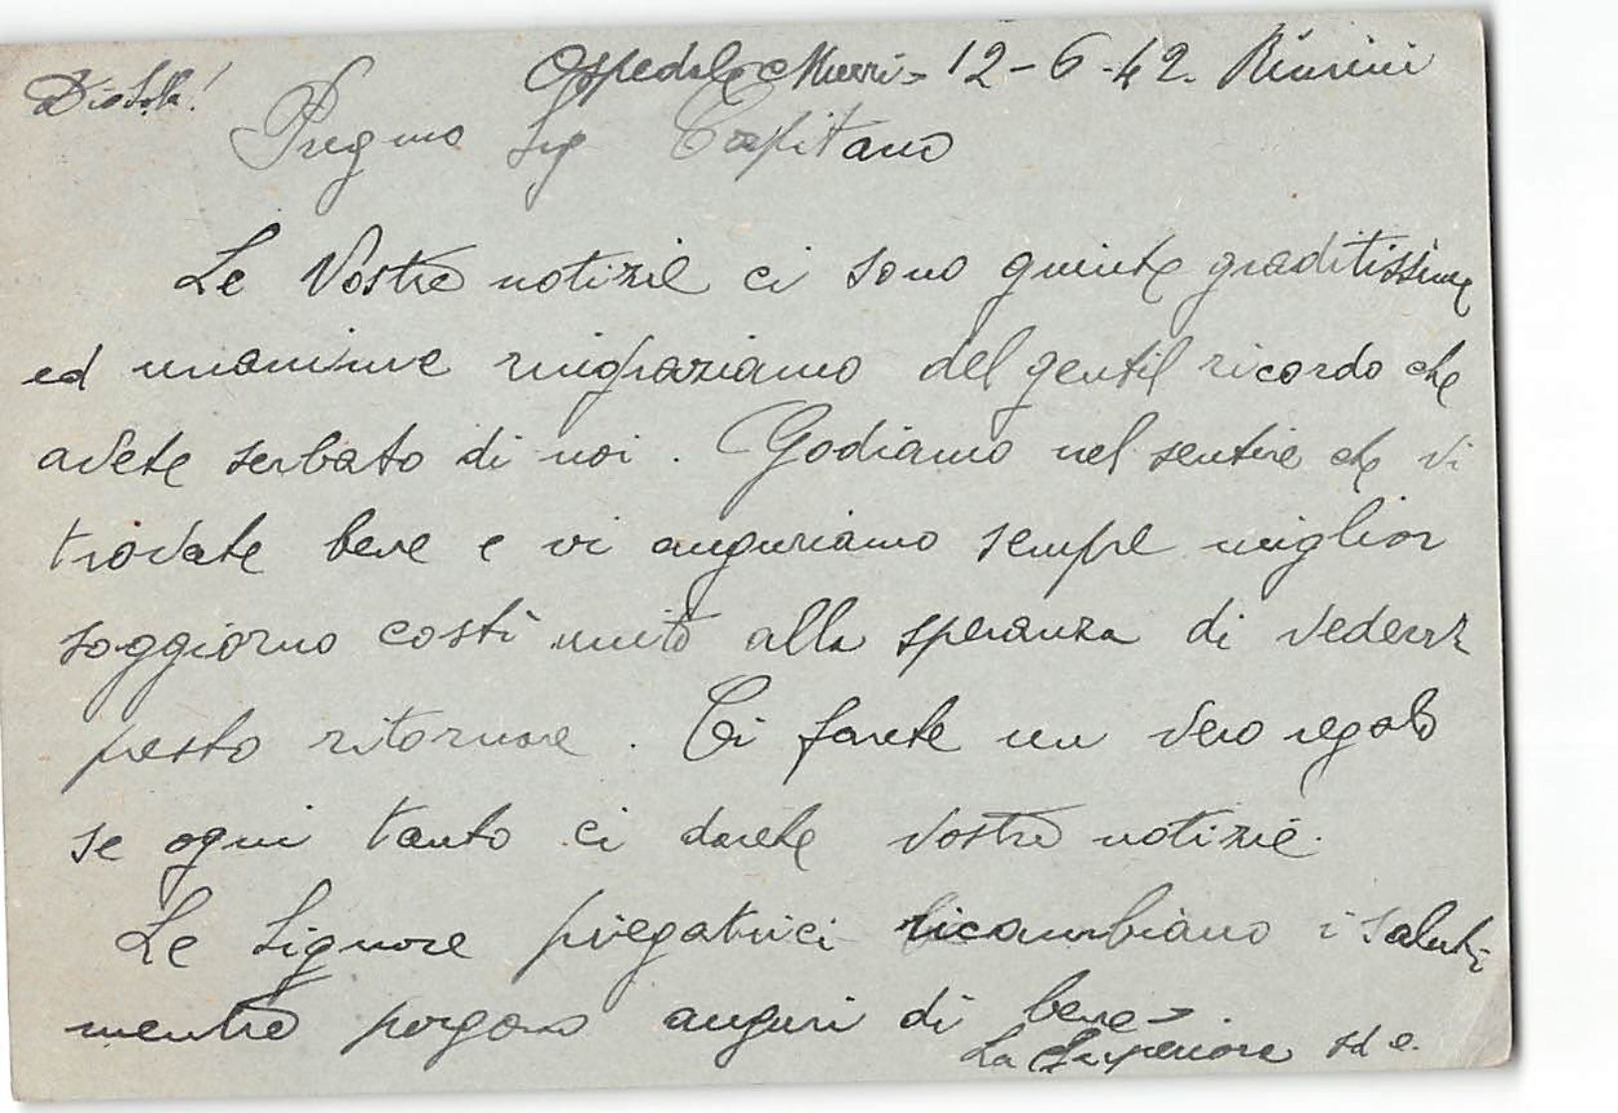 Dio solo! Ospedale Murri - 12-6-42. Rimini
Pregmo Sig Capitano
Le Vostre notizie ci sono giunte graditissime
ed unanime ringraziamo del gentil ricordo che
avete serbato di noi. Godiamo nel sentire che vi
trovate bene e vi auguriamo sempre miglior
soggiorno costì unito alla speranza di vedervi
presto ritornare. Ci farete un vero regalo
se ogni tanto ci darete vostre notizie.
Le Signore ricambiano i saluti
mentre porgono auguri di bene -.
La Superiora